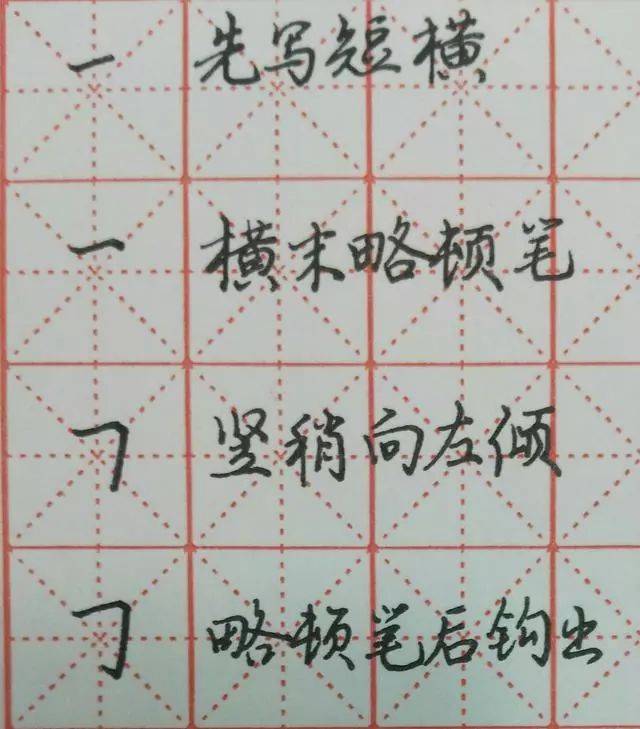 一 先写短横
一 横末略顿笔
㇕ 竖稍向左倾
㇆ 略顿笔后钩出